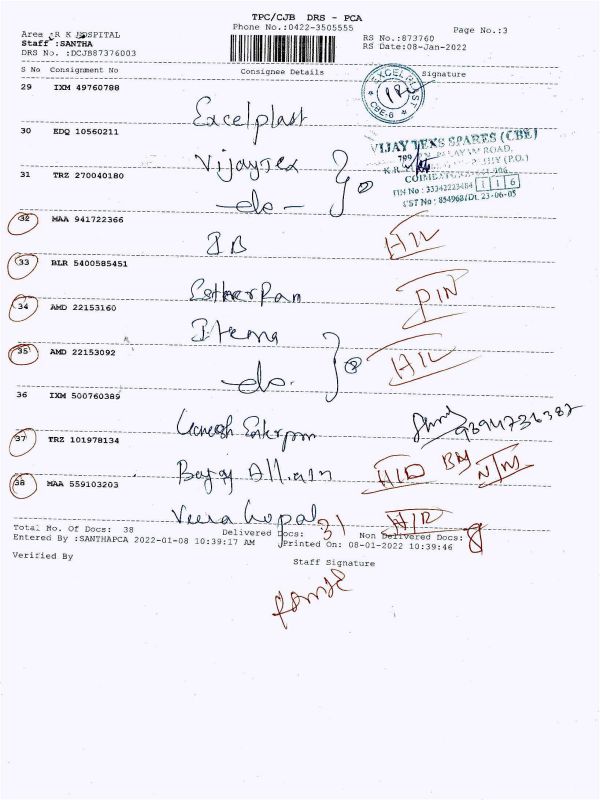 TPC/CJB DRS - PCA
Phone No.:0422-3505555
Page No.:3
Area :R K HOSPITAL
Staff :SANTHA
DRS No. :DCJB87376003
RS No.:873760
RS Date:08-Jan-2022
S No Consignment No Consignee Details Signature
29 IXM 49760788
Excelplast
EXCEL PLAST
CBE-6
30 EDQ 10560211
Vijaytex
VIJAY TEXS SPARES (CBE)
31 TRZ 270040180
-do-
②
COIMBATORE
TIN No : 33342223464 1 1 6
CST No : 854968/Dt. 23-06-05
32 MAA 941722366
33 BLR 5400585451
34 AMD 22153160
PIN
Itema
35 AMD 22153092
-do.
②
36 IXM 500760389
Ganesh
9894736387
37 TRZ 101978134
Bajaj
38 MAA 559103203
Veera Gopal
Total No. Of Docs: 38 Delivered Docs: 31 Non Delivered Docs: 8
Entered By :SANTHAPCA 2022-01-08 10:39:17 AM Printed On: 08-01-2022 10:39:46
Verified By
Staff Signature